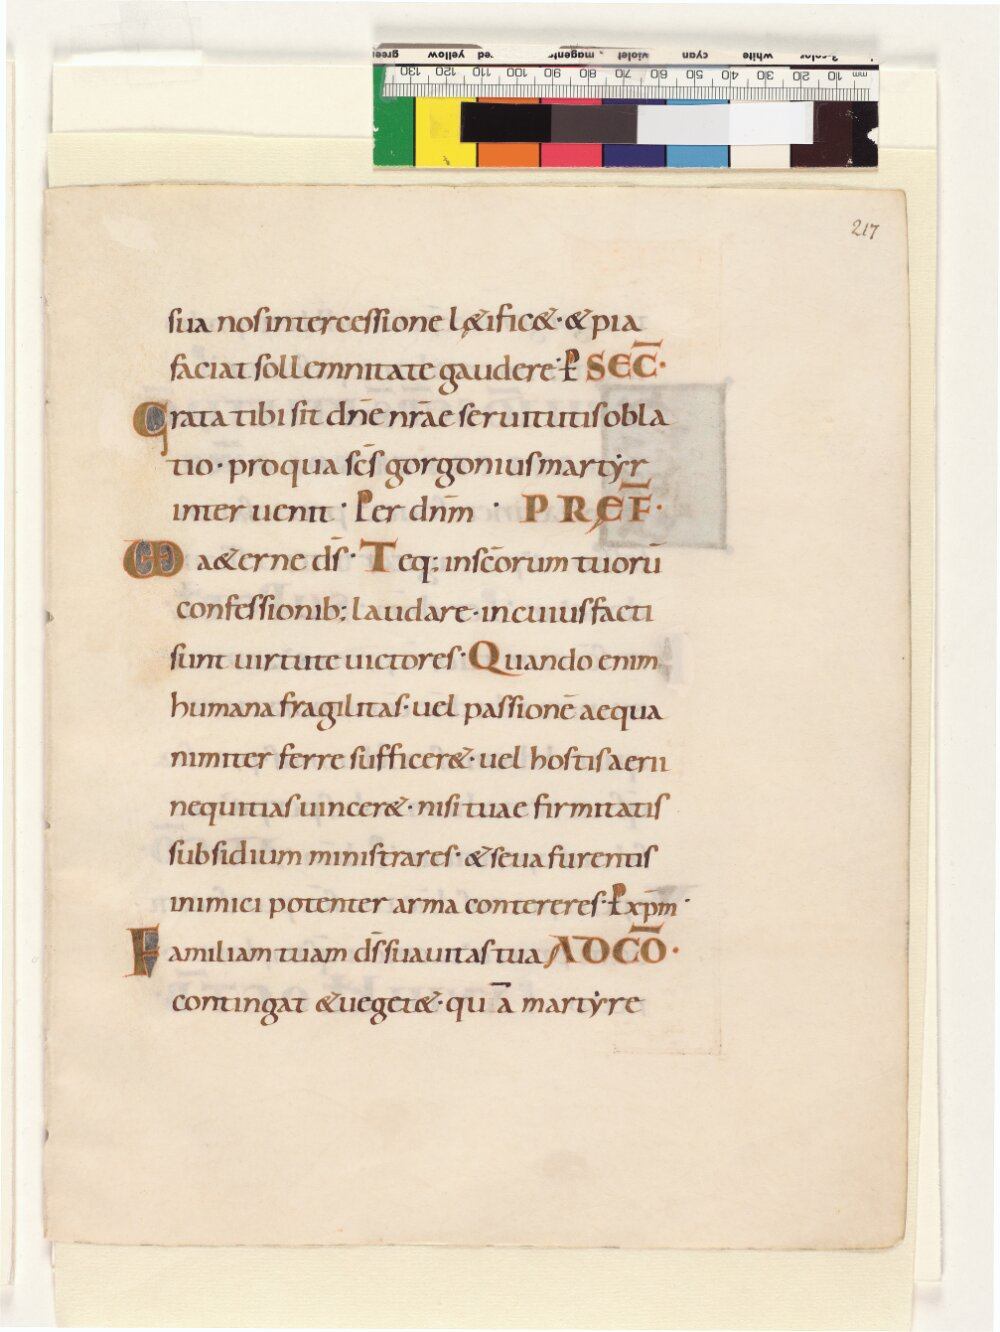 green yellow red magenta violet cyan white 3-color
mm 10 20 30 40 50 60 70 80 90 100 110 120 130
217
sua nos intercessione l&ific&· & pia
faciat sollemnitate gaudere· P̄ SEC̄·
Grata tibi sit dn̄e nr̄ae seruitutis obla
tio· pro qua sc̄s gorgonius martẏr
interuenit· Per dnm̄ · PREF̄·
UD a&erne ds̄· Teq; in sc̄orum tuorū
confessionib; laudare· in cuius facti
sunt uirtute uictores· Quando enim
humana fragilitas· uel passionē aequa
nimiter ferre suffícer&· uel hostis aerii
nequitias uincer&· nisi tuae firmitatis
subsidium ministrares· & seua furentis
inimici potenter arma contereres· P̄ xp̄m·
Familiam tuam ds̄ suauitas tua AD CŌ·
contingat & ueget&· quā martẏre